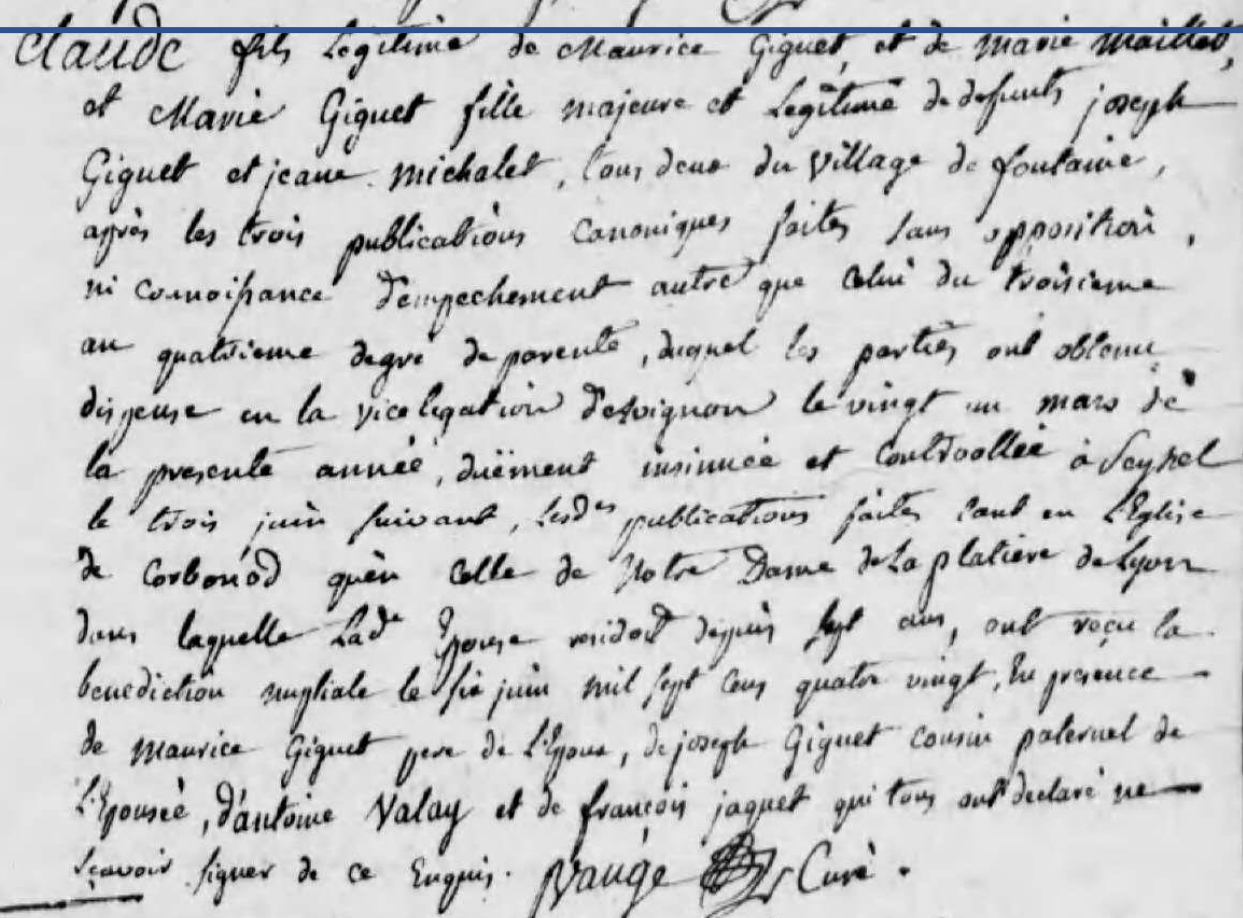 Claude fils Legitime de Maurice Giguet, et de Marie Maillet,
et Marie Giguet fille majeure et Legitime de defunts joseph
Giguet et jeane michalet, tous deux du village de fontaine,
après les trois publications canoniques faites sans opposition,
ni connoissance d'empechement autre que celui du troisieme
au quatrieme degré de parenté, duquel les parties ont obtenu
dispense en la vice legation d'Avignon le vingt un mars de
la presente année, duëment insinuée et controollée à Seyssel
le trois juin suivant, Lesdes publications faites tant en L'Eglise
de Corbonod qu'en celle de Notre Dame de La platiere de Lyon
dans laquelle Lade Epouse residoit depuis sept ans, ont reçu la
benediction nuptiale le six juin mil sept cens quatre vingt, En presence
de Maurice Giguet pere de L'Epoux, de joseph Giguet cousin paternel de
L'Epousée, d'antoine Valay et de françois jaquet qui tous ont declaré ne
sçavoir signer de ce Enquis. Curé.